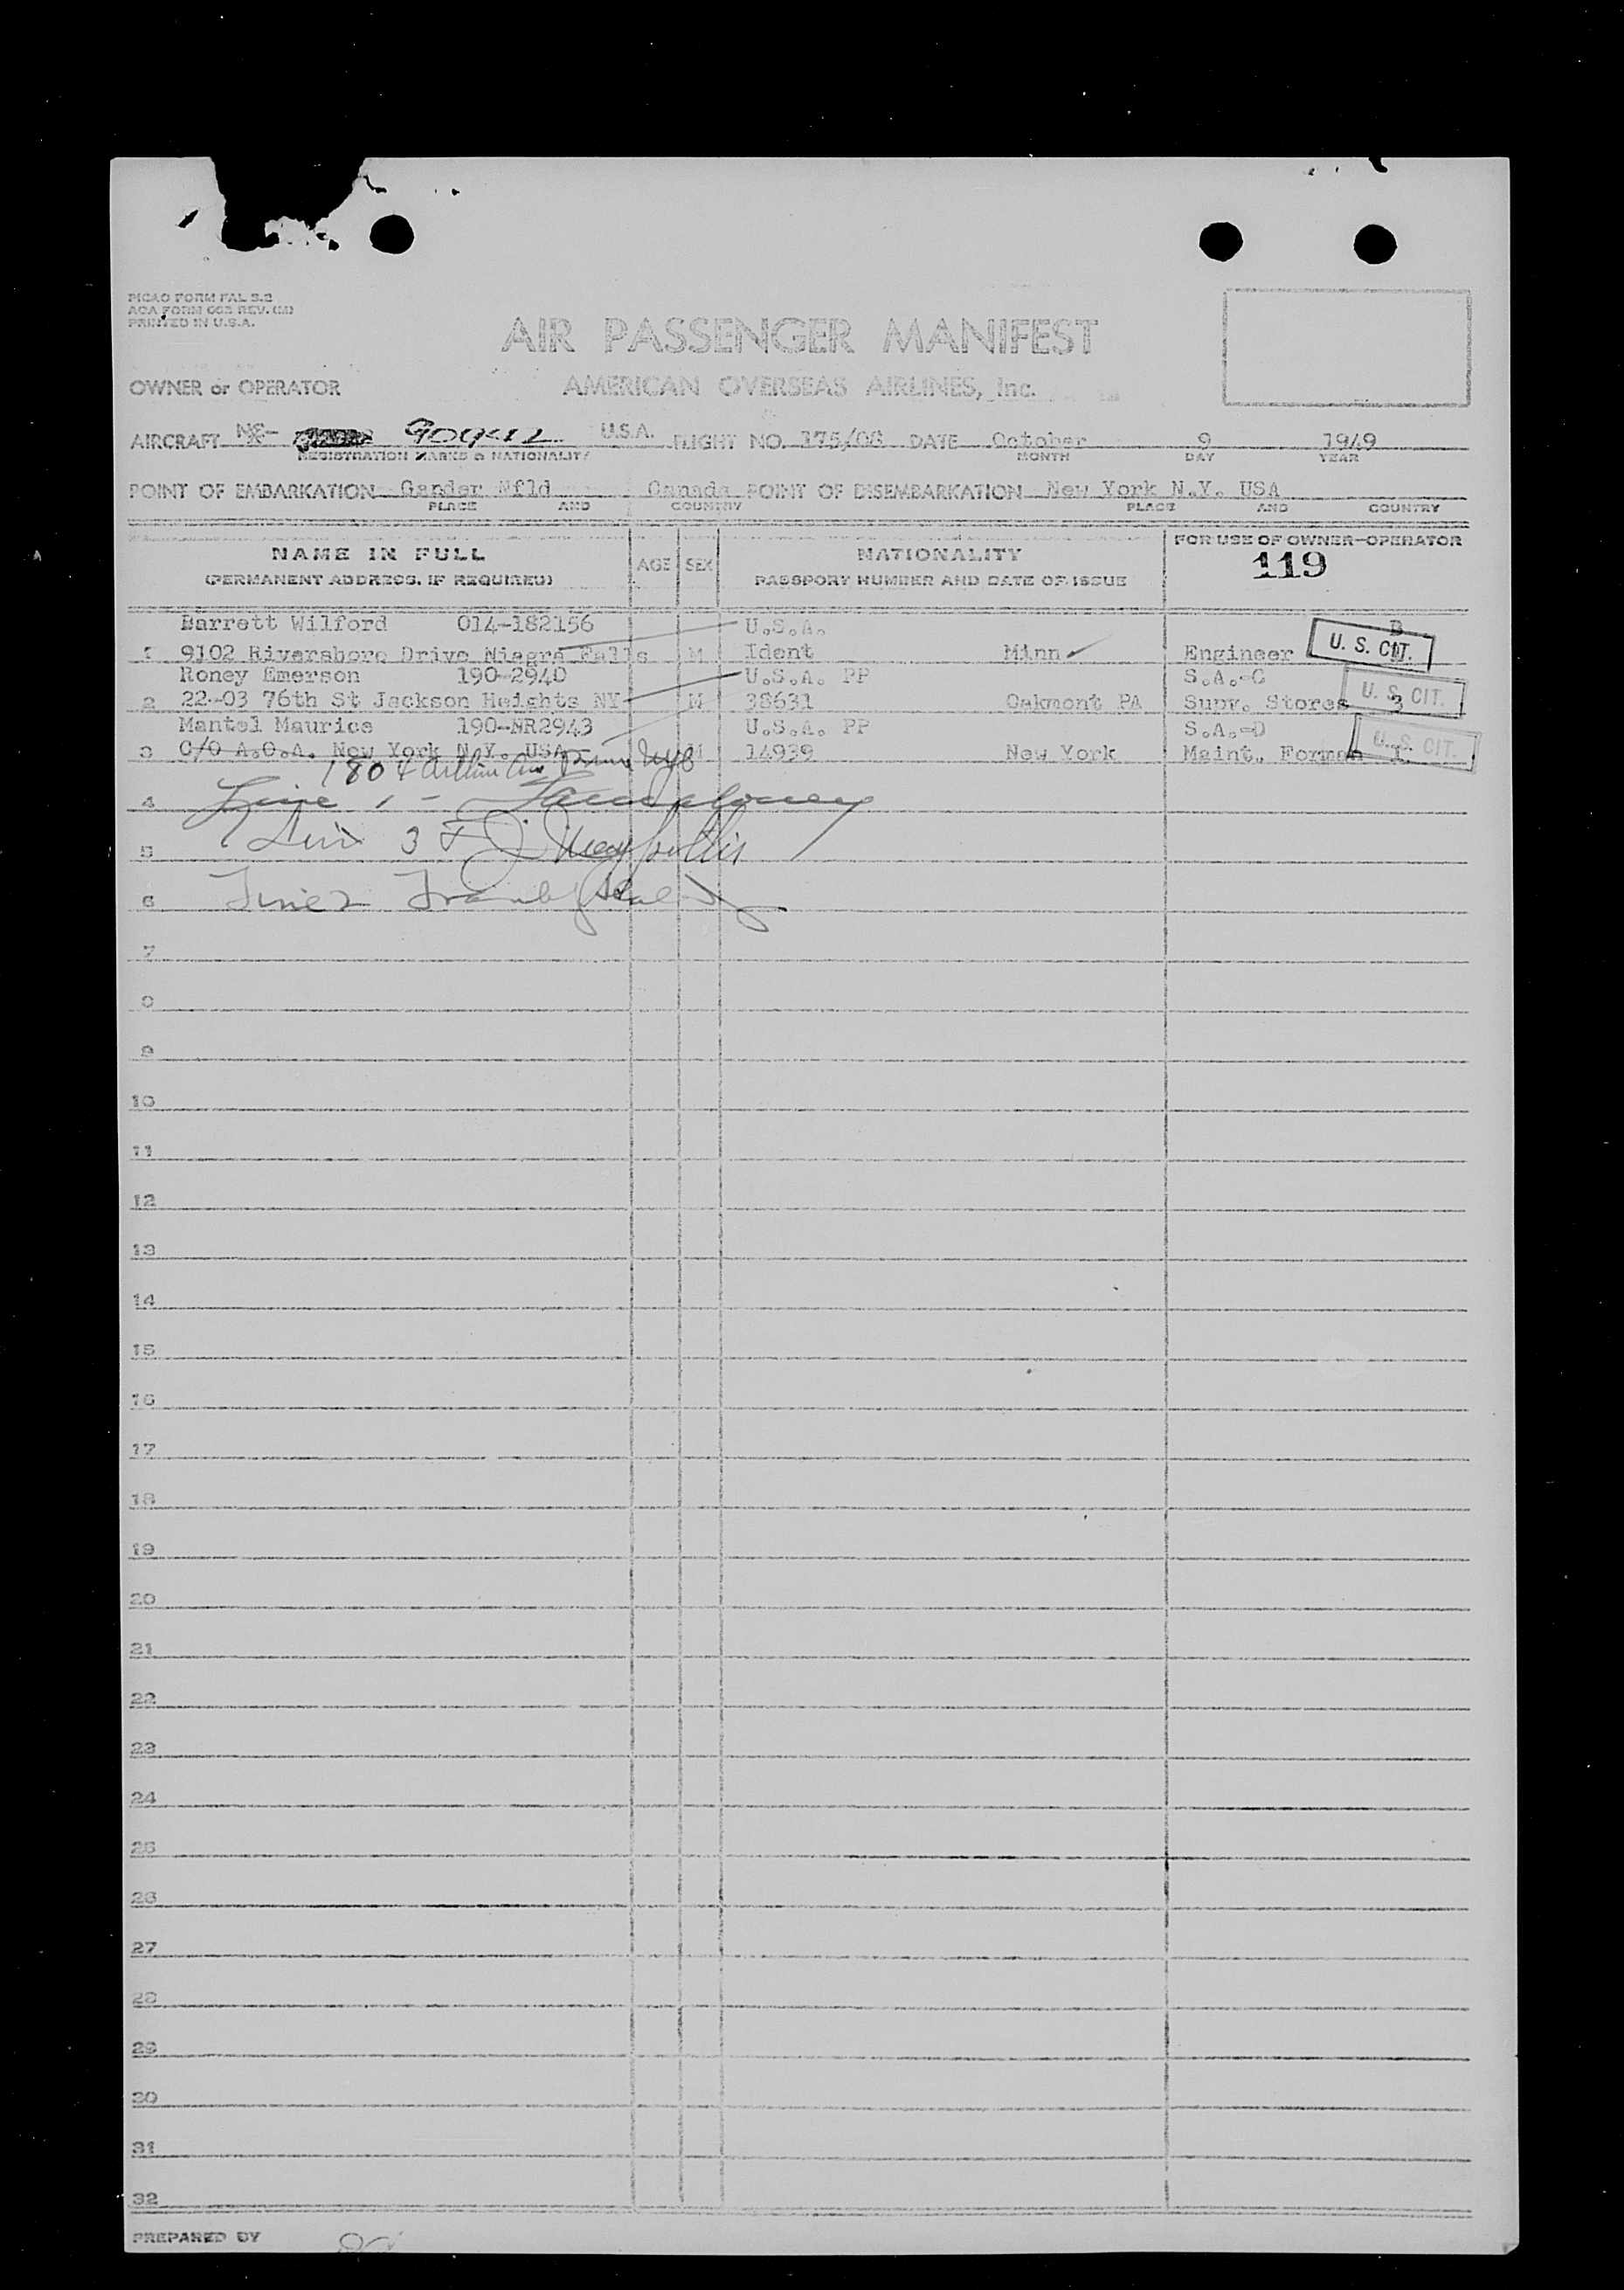 PICAO FORM FAL 3.2
ACA FORM 003 REV. (M)
PRINTED IN U.S.A.
AIR PASSENGER MANIFEST
OWNER or OPERATOR AMERICAN OVERSEAS AIRLINES, Inc.
AIRCRAFT U.S.A. FLIGHT NO. DATE October 9 1949
REGISTRATION MARKS & NATIONALITY MONTH DAY YEAR
POINT OF EMBARKATION Gander Nfld Canada POINT OF DISEMBARKATION New York N.Y. USA
PLACE AND COUNTRY PLACE AND COUNTRY
NAME IN FULL AGE SEX NATIONALITY FOR USE OF OWNER-OPERATOR
(PERMANENT ADDRESS. IF REQUIRED) PASSPORT NUMBER AND DATE OF ISSUE 119
Barrett Wilford 014-182156 U.S.A. B
1 9102 Riversboro Drive Niagra Falls M Ident Minn Engineer U. S. CIT.
Roney Emerson 190-2940 U.S.A. PP S.A.-C
2 22-03 76th St Jackson Heights NY M 38631 Oakmont PA Supv. Stores 3 U. S. CIT.
Mantel Maurice 190-NR2943 U.S.A. PP S.A.-D
3 C/O A.O.A. New York N.Y. USA M 14939 New York Maint. Forman 1 U. S. CIT.
4 Line 1 -
5 3
6 Line 2 Frank
7
8
9
10
11
12
13
14
15
16
17
18
19
20
21
22
23
24
25
26
27
28
29
30
31
32
PREPARED BY